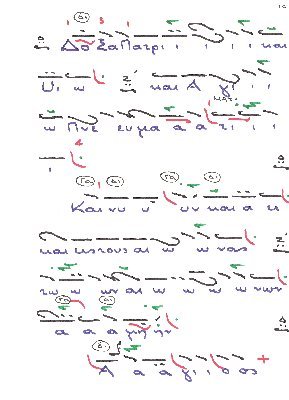 Δο ξα Πα τρι ι ι ι ι και
Υι ω και Α γι
ω Πνε ευ μα α α τι ι ι
ι
Και νυ υ υν και α ει
και εις τους αι ω ω νας
των ω ων αι ω ω ω ω νων
α α α μη ην
Α α α γι ι ο ος